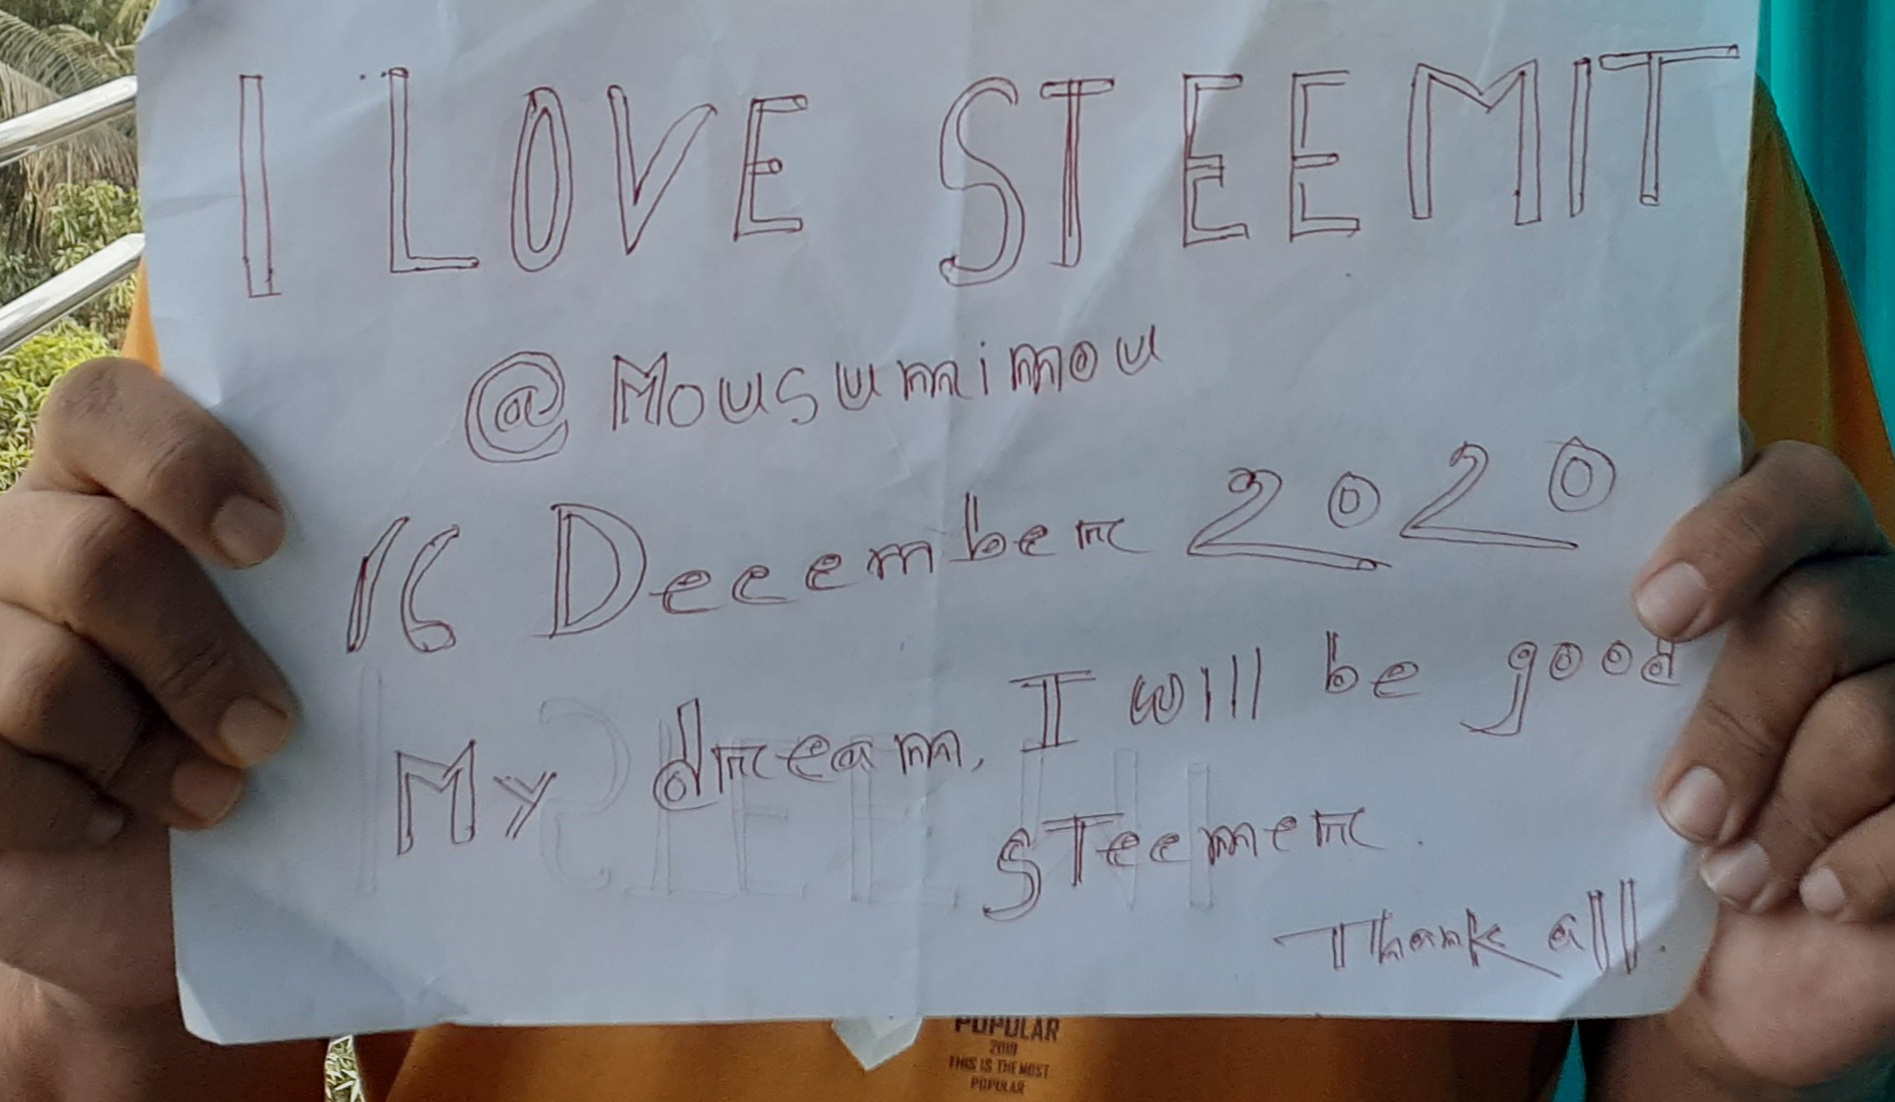 I LOVE STEEMIT
@Mousumimou
16 December 2020
My dream, I will be good
STeemer.
Thank all.
POPULAR
2019
THIS IS THE MOST
POPULAR